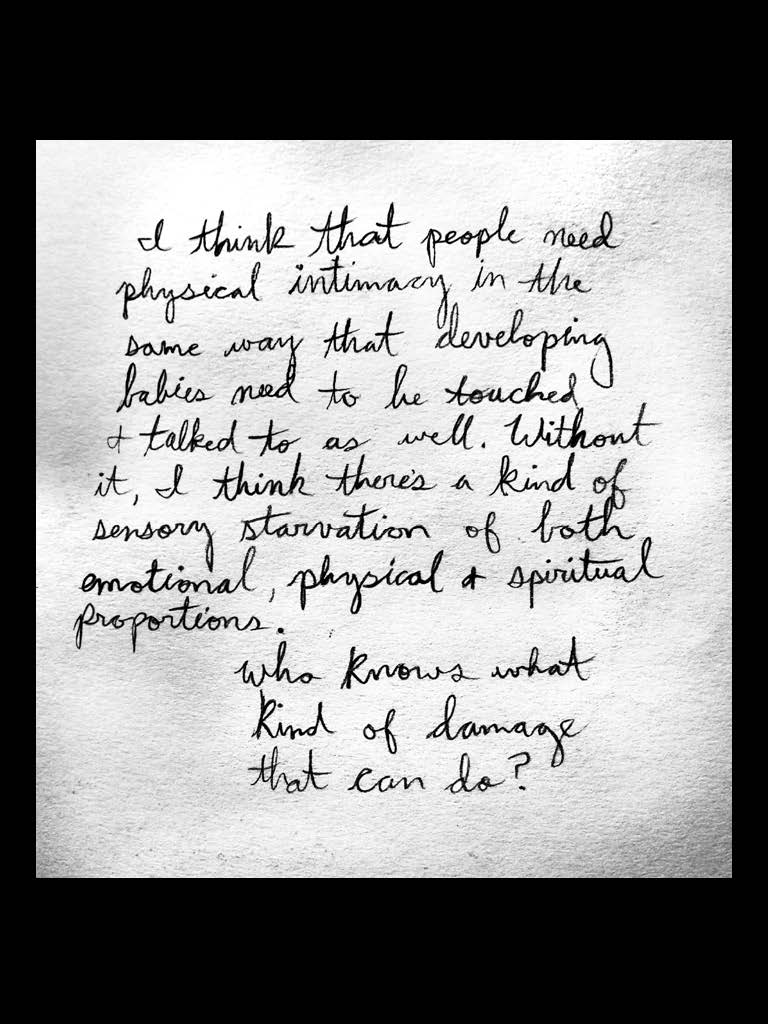 I think that people need
physical intimacy in the
same way that developing
babies need to be touched
& talked to as well. Without
it, I think there's a kind of
sensory starvation of both
emotional, physical & spiritual
proportions.
Who knows what
kind of damage
that can do?